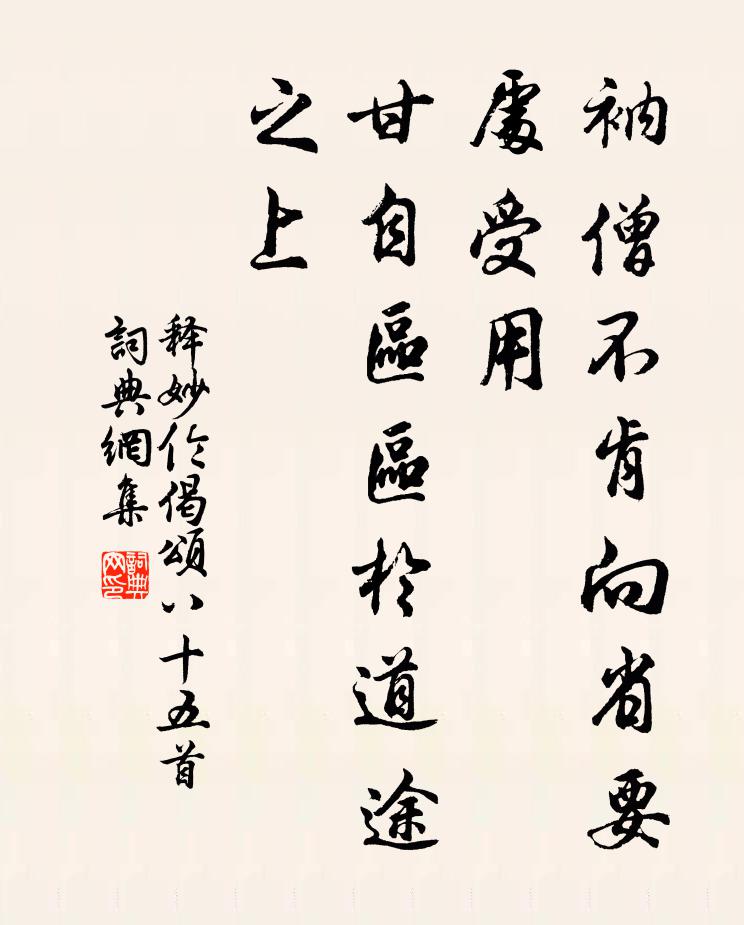 衲僧不肯向省要
處受用
甘自區區於道途
之上
释妙伦偈頌八十五首
詞典網集
詞典網印